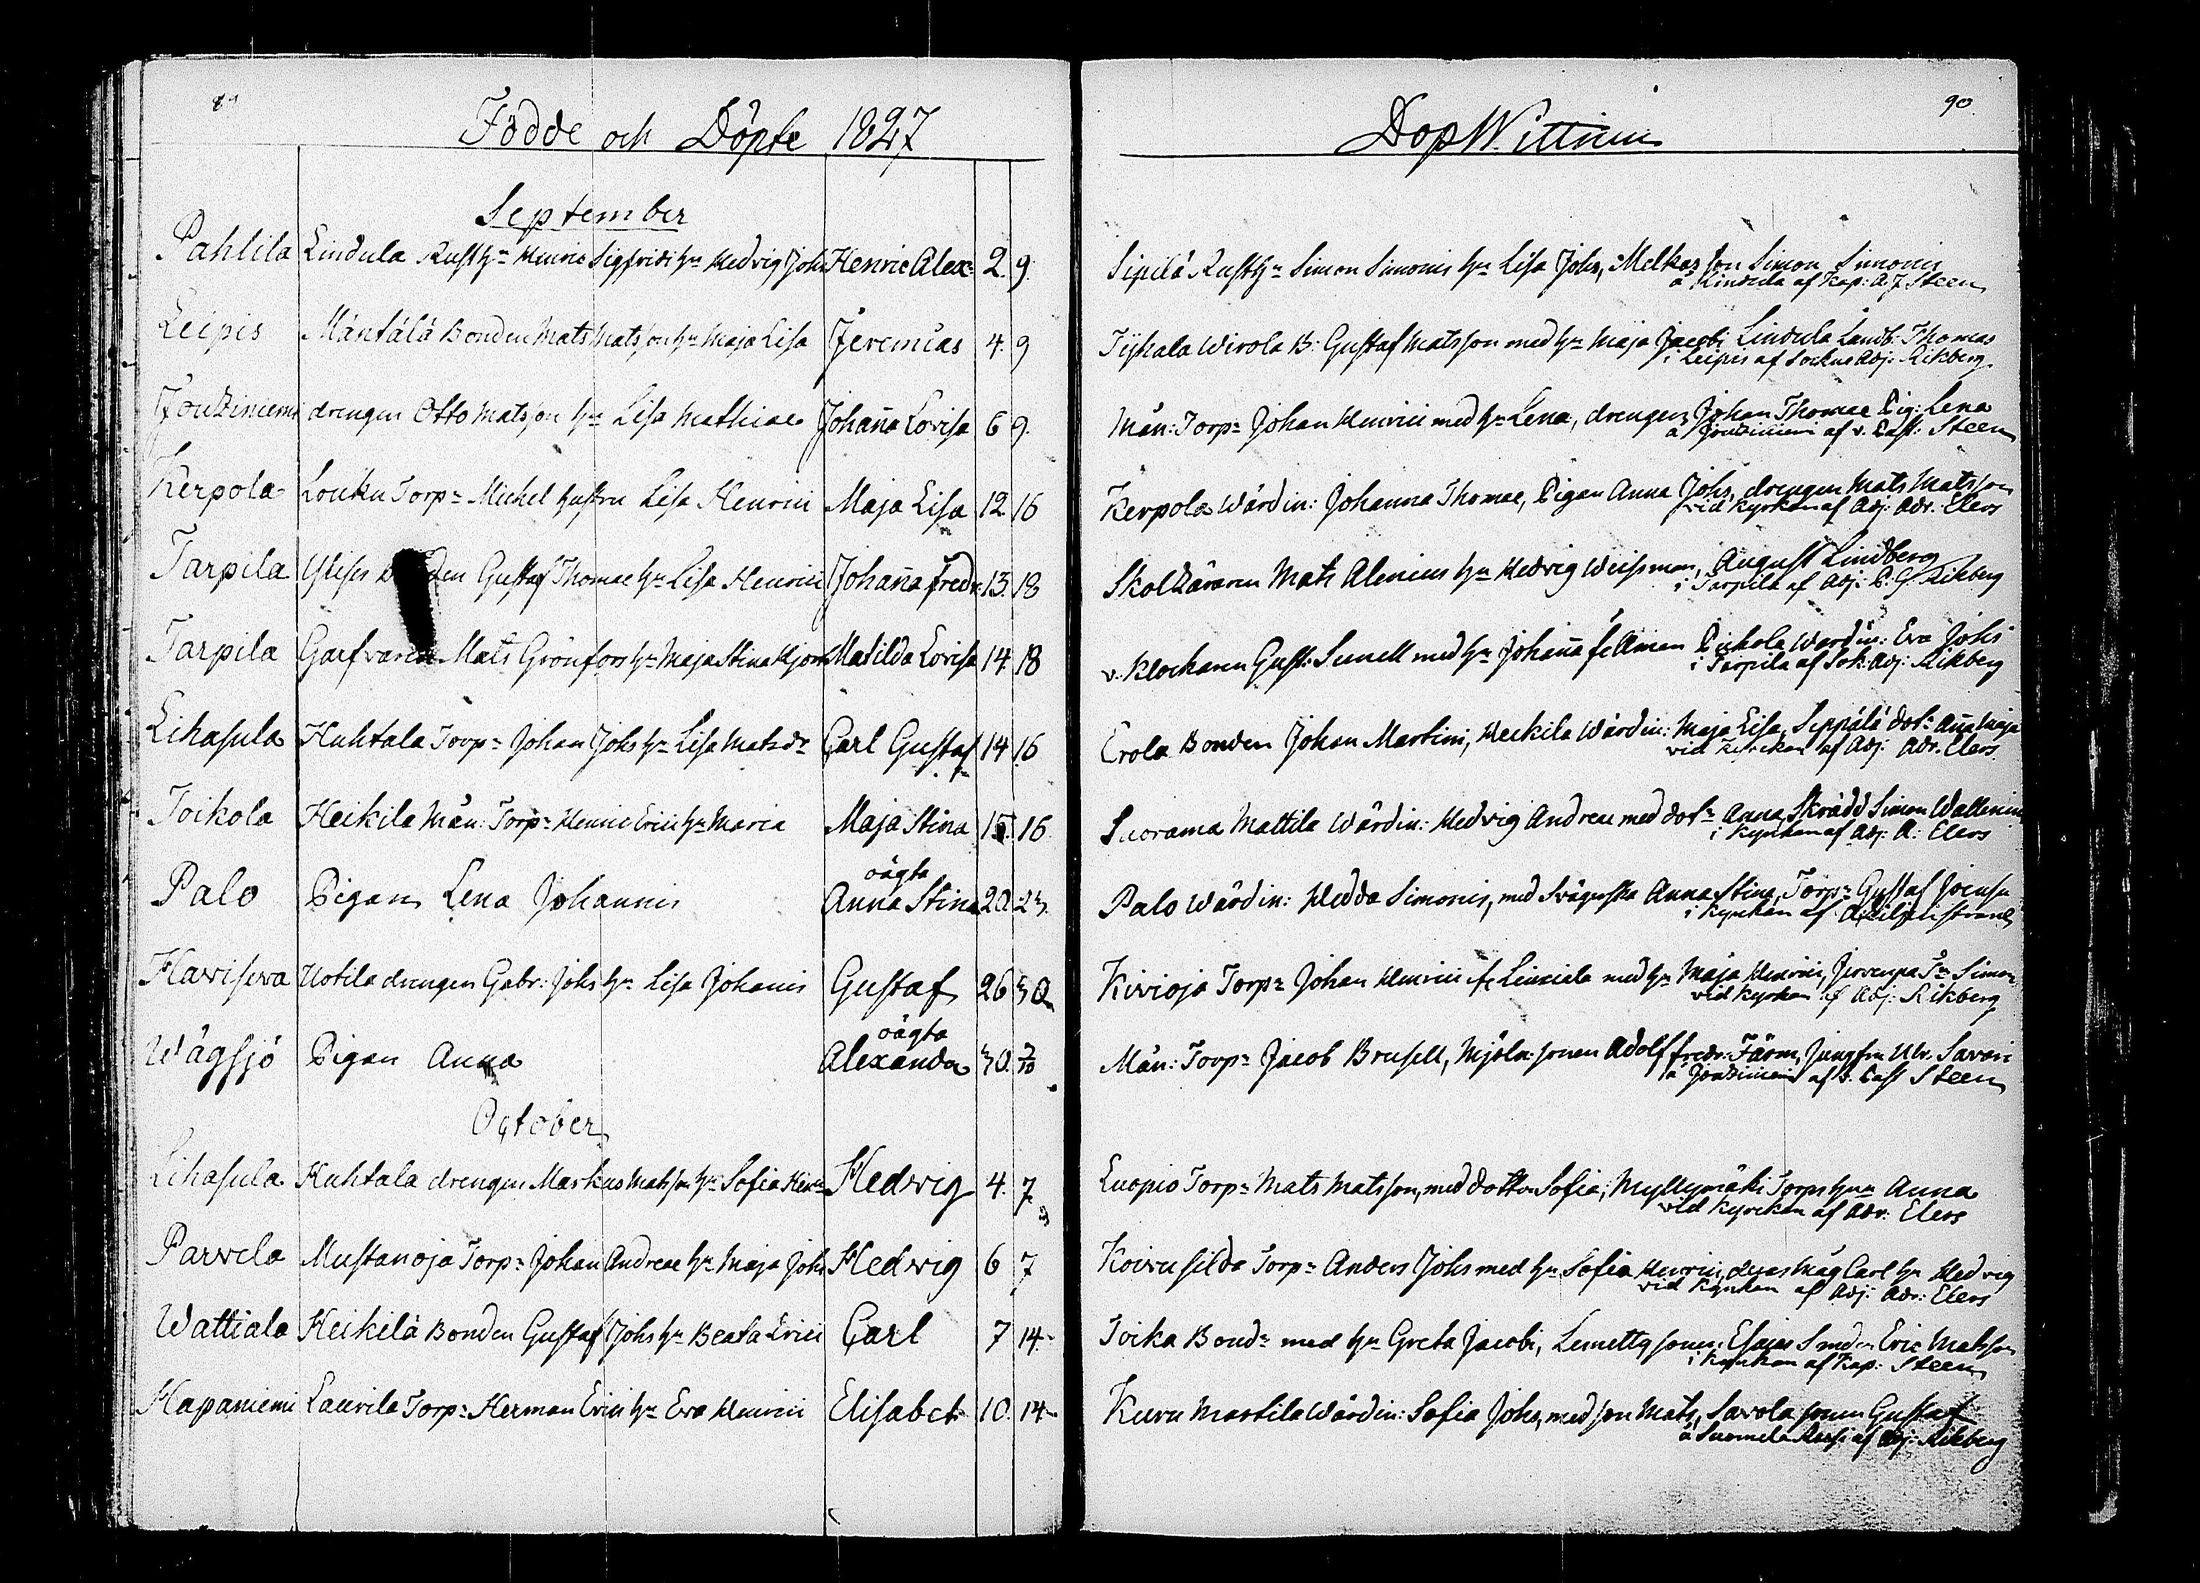 89
Födde och Döpte 1827
September
Pahlila Lindula Rusth:n Henric Sigfridi h:u Hedvig Johs Henric Alex: 2. 9.
Leipis Mäntälä Bonden Mats Matsson h:u Maja Lisa Jeremias 4. 9
Joutziniemi drengen Otto Matsson h:u Lisa Mathiae Johan̄a Lovisa 6 9.
Kerpola Louku Torp:n Michel hustru Lisa Henrici Maja Lisa 12 16
Tarpila Gustaf Thomae h:u Lisa Henrici Johan̄a Fredr: 13. 18
Tarpila Garfvaren Mats Grönfors h:u Maja Stina Matilda Lovisa 14 18
Lihasula Huhtala Torp:n Johan Johs h:u Lisa Matsd:r Carl Gustaf 14 16
Toikola Heikilä Män: Torp:n Henric Erici h:u Maria Maja Stina 15 16
Palo Pigan Lena Johannis oägta Anna Stina 20. 23.
Haviseva Uotila drengen Gabr: Johs h:u Lisa Johanis Gustaf 26 30
Wågsjö Pigan Anna oägta Alexanda 30.
October
Lihasula Huhtala drengen Markus Matsson h:u Sofia Hen: Hedwig 4. 7
Parvela Mustanoja Torp:n Johan Andreae h:u Maja Johs Hedwig 6 7
Wattiala Heikilä Bonden Gustaf Johs h:u Beata Erici Carl 7 14.
Hapaniemi Laurila Torp:n Herman Erici h:u Eva Henrici Elisabet 10. 14
90
DopWittnen
Sipilä Rusth:n Simon Simonis h:u Lisa Johs, Melkas son Simon Simonis
å Lindula af Kap: A J Steen
Wirola B: Gustaf Matsson med h:u Maja Jacobi Lindula Landb. Thomas
i Leipis af Sockne Adj: Rikberg
Män: Torp:n Johan Henrici med h:u Lena, drengen Johan Thomae Pig: Lena
å Joutziniemi af v. Past: Steen
Kerpola Wärdin: Johanna Thomae, Pigan Anna Johs, drengen Mats Matsson
vid Kyrkan af Adj: Adr. Elers
Skolläraren Mats Alenius h:u Hedvig Weisman, August Lindberg
i Tarpila af Adj: Rikberg
v. Klockaren Gust: Sunell med h:u Johan̄a Fellman Wärdin: Eva Johs
i Tarpila af Sok: Adj: Rikberg
Erola Bonden Johan Martini, Heikila Wärdin: Maja Lisa, Seppälä dot:r An̄a Maja
vid Kyrckan af Adj: Adr. Elers.
Suorama Mattila Wärdin: Hedvig Andreae med dot:r Anna, Skrädd Simon Wallenius
i Kyrkan af Adj: A: Elers
Palo Wärdin: Hedda Simonis, med Svägerska Anna Stina, Torp:n Gustaf
i Kyrkan af Liljenstrand
Kivioja Torp:n Johan Henrici med h:u Maja Henrici, Simon
vid Kyrkan af Adj: Rikberg
Män: Torp:n Jacob Brusell, Mjöln: sonen Adolf Fredr: Färm, Jungfru Ulr. Savoni
å Joutziniemi af v. Past Steen
Luopio Torp:n Mats Matsson, med dotter Sofia, Myllymäki Torps h:un Anna
vid Kyrckan af Adr: Elers
Koivusilda Torp:n Anders Johs med h:u Sofia Henrici, deras Måg Carl h:u Hedvig
vid Kyrkan af Adj: Adr: Elers
Toika Bond:n med h:u Greta Jacobi, Lemetty sonen Esaias Eric Matsson
i Kyrkan af Kap: Steen
Kuru Martila Wärdin: Sofia Johs, med son Mats, Savola sonen Gustaf
å Suomela af Adj: Rikberg